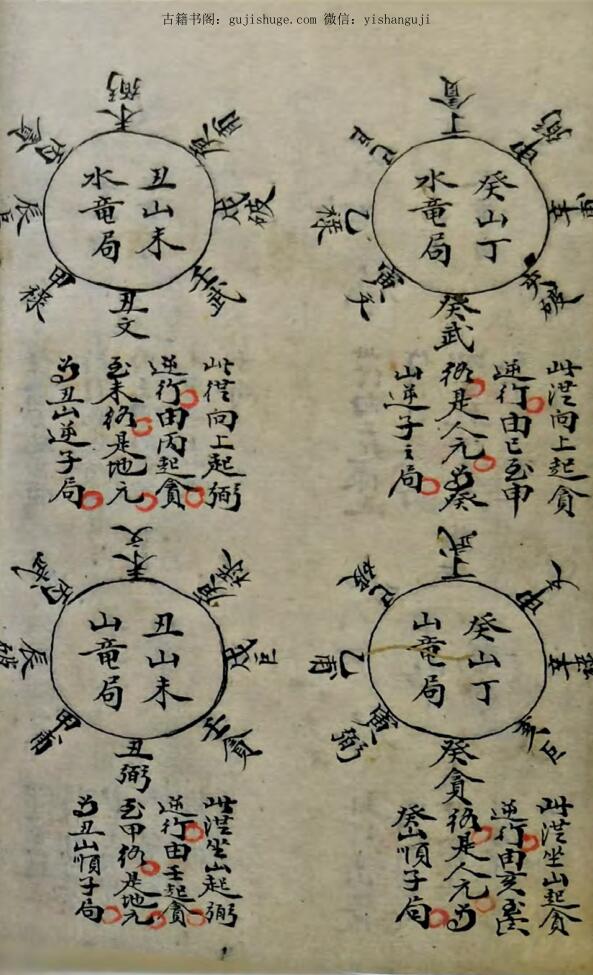 古籍书阁：gujishuge.com 微信：yishanguji
丁貪
巳巨
乙祿
寅文
癸武
癸山丁
水竜局
此從向上起貪
逆行由巳至申
終是人元為癸
山逆子之局
未弼
丙貪
辰巨
甲祿
丑文
壬武
戌破
丑山未
水竜局
此從向上起弼
逆行由丙起貪
至未終是地元
為丑山逆子局
巳破
乙甫
寅弼
癸貪
亥巨
申文
癸山丁
山竜局
此從坐山起貪
逆行由亥至
終是人元為
癸山順子局
未文
丙武
辰破
甲甫
丑弼
壬貪
戌巨
丑山未
山竜局
此從坐山起弼
逆行由壬起貪
至甲終是地元
為丑山順子局